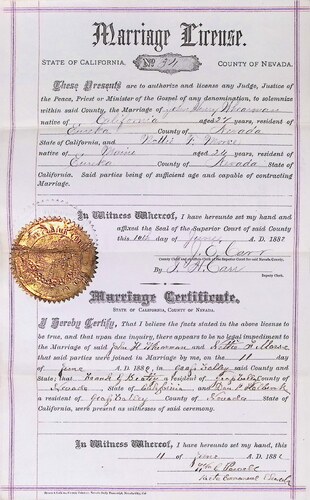 Marriage License.
STATE OF CALIFORNIA, No 34 COUNTY OF NEVADA.
These Presents are to authorize and license any Judge, Justice of
the Peace, Priest or Minister of the Gospel of any denomination, to solemnize
within said County, the Marriage of John Henry
native of California aged 24 years, resident of
Eureka County of Nevada
State of California, and Nettie F. Morse
native of Maine aged 24 years, resident of
Eureka County of Nevada State of
California. Said parties being of sufficient age and capable of contracting
Marriage.
In Witness Whereof, I have hereunto set my hand and
affixed the Seal of the Superior Court of said County
this 10th day of June A. D. 1882
E. Carr
By F. H. Carr
Deputy Clerk.
Marriage Certificate.
STATE OF CALIFORNIA, COUNTY OF NEVADA.
I Hereby Certify, That I believe the facts stated in the above license to
be true, and that upon due inquiry, there appears to be no legal impediment to
the Marriage of said John H. and Nettie F. Morse
that said parties were joined in Marriage by me, on the 11 day of
June A. D. 188 , in Grass Valley said County and
State; that Frank G. Beatty a resident of Grass Valley County of
Nevada State of California and
a resident of Grass Valley County of Nevada State of
California, were present as witnesses of said ceremony.
In Witness Whereof, I have hereunto set my hand, this
11 day of June A. D. 1882